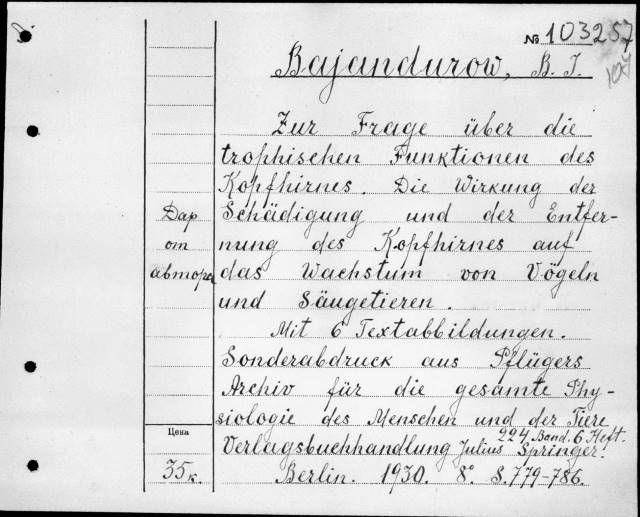 № 103257
Bajandurow, B. I.
Zur Frage über die
trophischen Funktionen des
Kopfhirnes. Die Wirkung der
Schädigung und der Entfer-
nung des Kopfhirnes auf
das Wachstum von Vögeln
und Säugetieren.
Mit 6 Textabbildungen.
Sonderabdruck aus Pflügers
Archiv für die gesamte Phy-
siologie des Menschen und der Tiere
224 Band. 6 Heft.
Verlagsbuchhandlung Julius Springer.
Berlin. 1930. 8° S. 779-786.
Дар
от
автора
Цена
35 к.